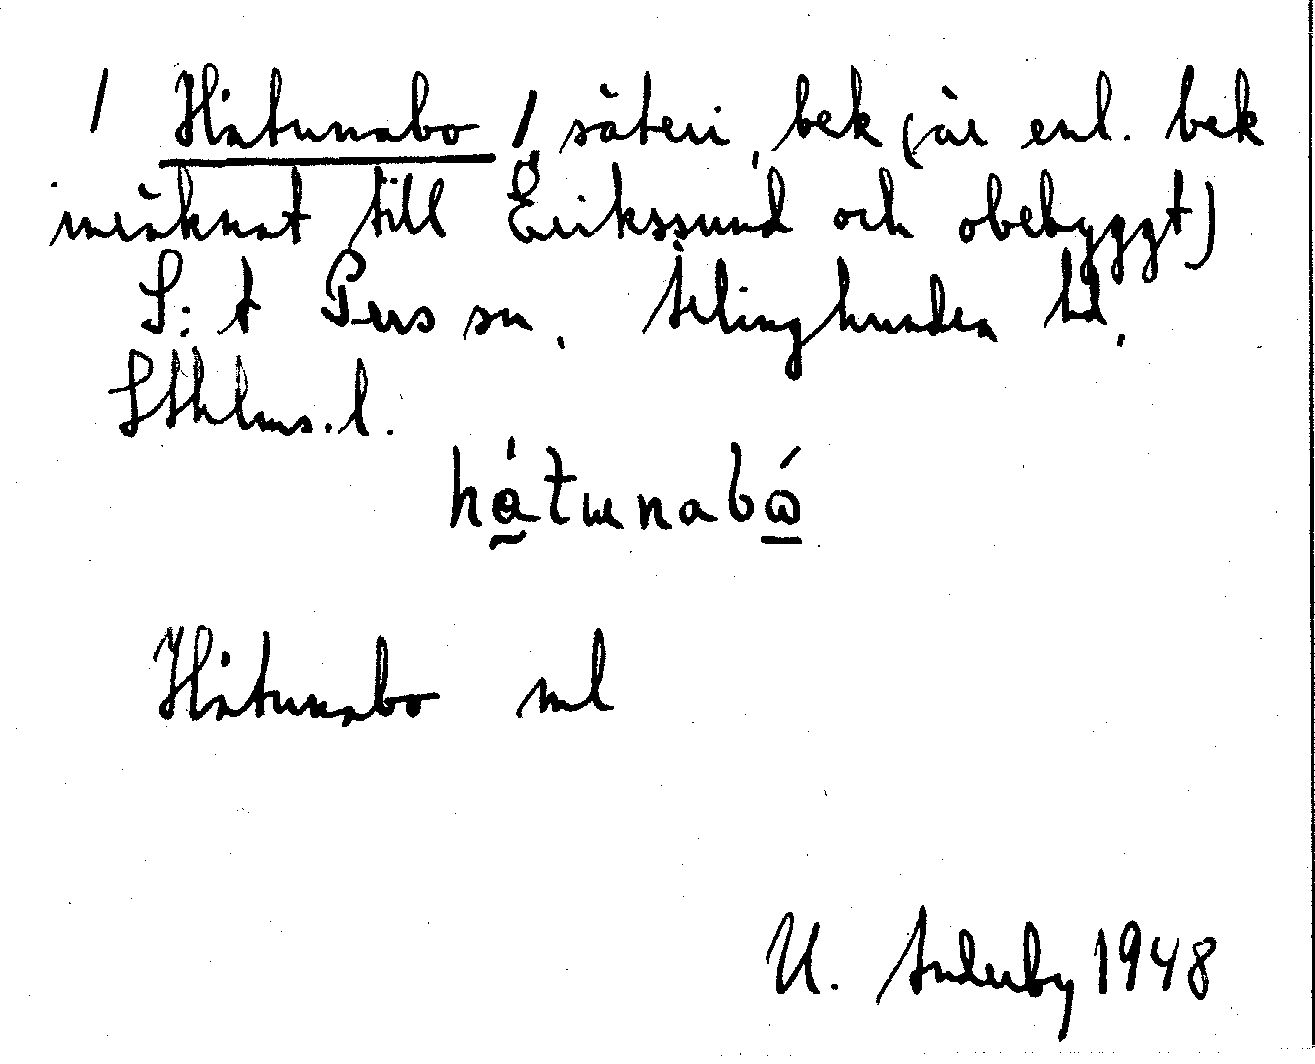 / Håtunabo / säteri, bek (är enl. bek
inräknat till Erikssund och obebyggt)
S:t Pers sn. Ärlinghundra hd,
Sthlms.l.
håtunabó
Håtunabo ml
U. Anderby 1948